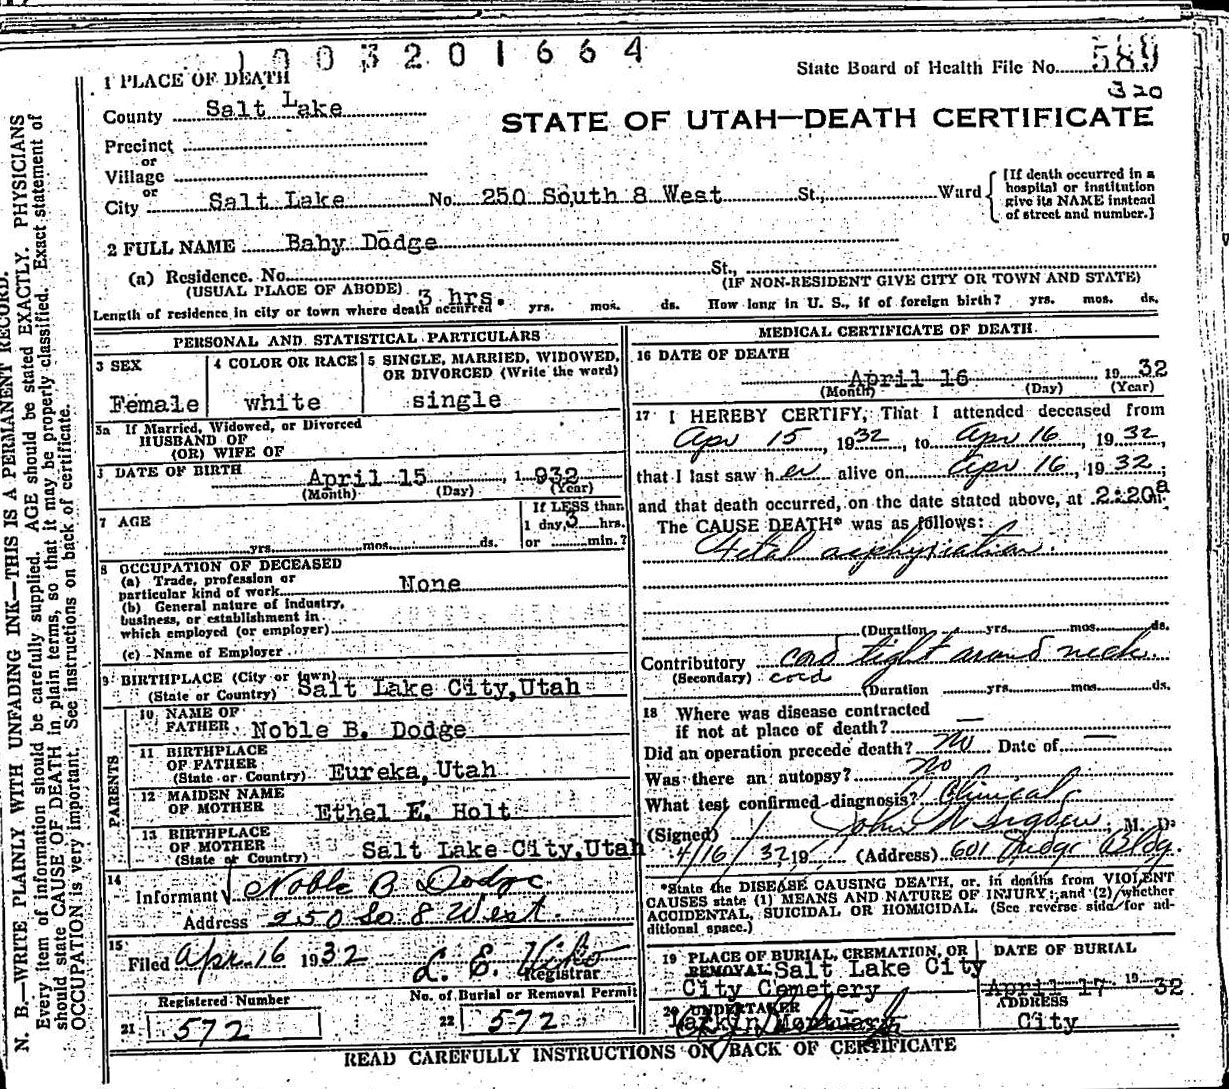 1003201664
State Board of Health File No. 589
320
STATE OF UTAH—DEATH CERTIFICATE
1 PLACE OF DEATH
County Salt Lake
Precinct
or
Village
or
City Salt Lake No. 250 South 8 West St., Ward
[If death occurred in a
hospital or institution
give its NAME instead
of street and number.]
2 FULL NAME Baby Dodge
(a) Residence. No. St.,
(USUAL PLACE OF ABODE) (IF NON-RESIDENT GIVE CITY OR TOWN AND STATE)
Length of residence in city or town where death occurred 3 hrs. yrs. mos. ds. How long in U. S., if of foreign birth? yrs. mos. ds.
PERSONAL AND STATISTICAL PARTICULARS
3 SEX
Female
4 COLOR OR RACE
white
5 SINGLE, MARRIED, WIDOWED,
OR DIVORCED (Write the word)
single
5a If Married, Widowed, or Divorced
HUSBAND OF
(OR) WIFE OF
DATE OF BIRTH April 15, 1932
(Month) (Day) (Year)
7 AGE
yrs. mos. ds.
If LESS than
1 day, 3 hrs.
or min.?
8 OCCUPATION OF DECEASED
(a) Trade, profession or
particular kind of work None
(b) General nature of industry,
business, or establishment in
which employed (or employer)
(c) Name of Employer
9 BIRTHPLACE (City or town)
(State or Country) Salt Lake City, Utah
PARENTS
10 NAME OF
FATHER Noble B. Dodge
11 BIRTHPLACE
OF FATHER
(State or Country) Eureka, Utah
12 MAIDEN NAME
OF MOTHER Ethel E. Holt
13 BIRTHPLACE
OF MOTHER
(State or Country) Salt Lake City, Utah
14
Informant Noble B Dodge
Address 250 So 8 West.
15
Filed Apr 16 1932 L. E.
Registrar
Registered Number
21 572
No. of Burial or Removal Permit
22 572
MEDICAL CERTIFICATE OF DEATH
16 DATE OF DEATH
April 16 1932
(Month) (Day) (Year)
17 I HEREBY CERTIFY, That I attended deceased from
Apr 15, 1932, to Apr 16, 1932,
that I last saw her alive on Apr 16, 1932;
and that death occurred, on the date stated above, at 2:20 a m.
The CAUSE DEATH* was as follows:
Fetal asphyxiation.
(Duration yrs. mos. ds.
Contributory cord tight around neck.
(Secondary) cord
(Duration yrs. mos. ds.
18 Where was disease contracted
if not at place of death? —
Did an operation precede death? No Date of —
Was there an autopsy? No
What test confirmed diagnosis? Clinical
(Signed) John W M. D.
4/16/32 19 (Address) 601 Judge Bldg.
*State the DISEASE CAUSING DEATH, or, in deaths from VIOLENT
CAUSES state (1) MEANS AND NATURE OF INJURY; and (2) whether
ACCIDENTAL, SUICIDAL OR HOMICIDAL. (See reverse side for ad-
ditional space.)
19 PLACE OF BURIAL, CREMATION, OR
REMOVAL Salt Lake City
City Cemetery
DATE OF BURIAL
April 17 1932
20 UNDERTAKER
Larkin Mortuary
ADDRESS
City
READ CAREFULLY INSTRUCTIONS ON BACK OF CERTIFICATE
N. B.—WRITE PLAINLY WITH UNFADING INK—THIS IS A PERMANENT RECORD.
Every item of information should be carefully supplied. AGE should be stated EXACTLY. PHYSICIANS
should state CAUSE OF DEATH in plain terms, so that it may be properly classified. Exact statement of
OCCUPATION is very important. See instructions on back of certificate.